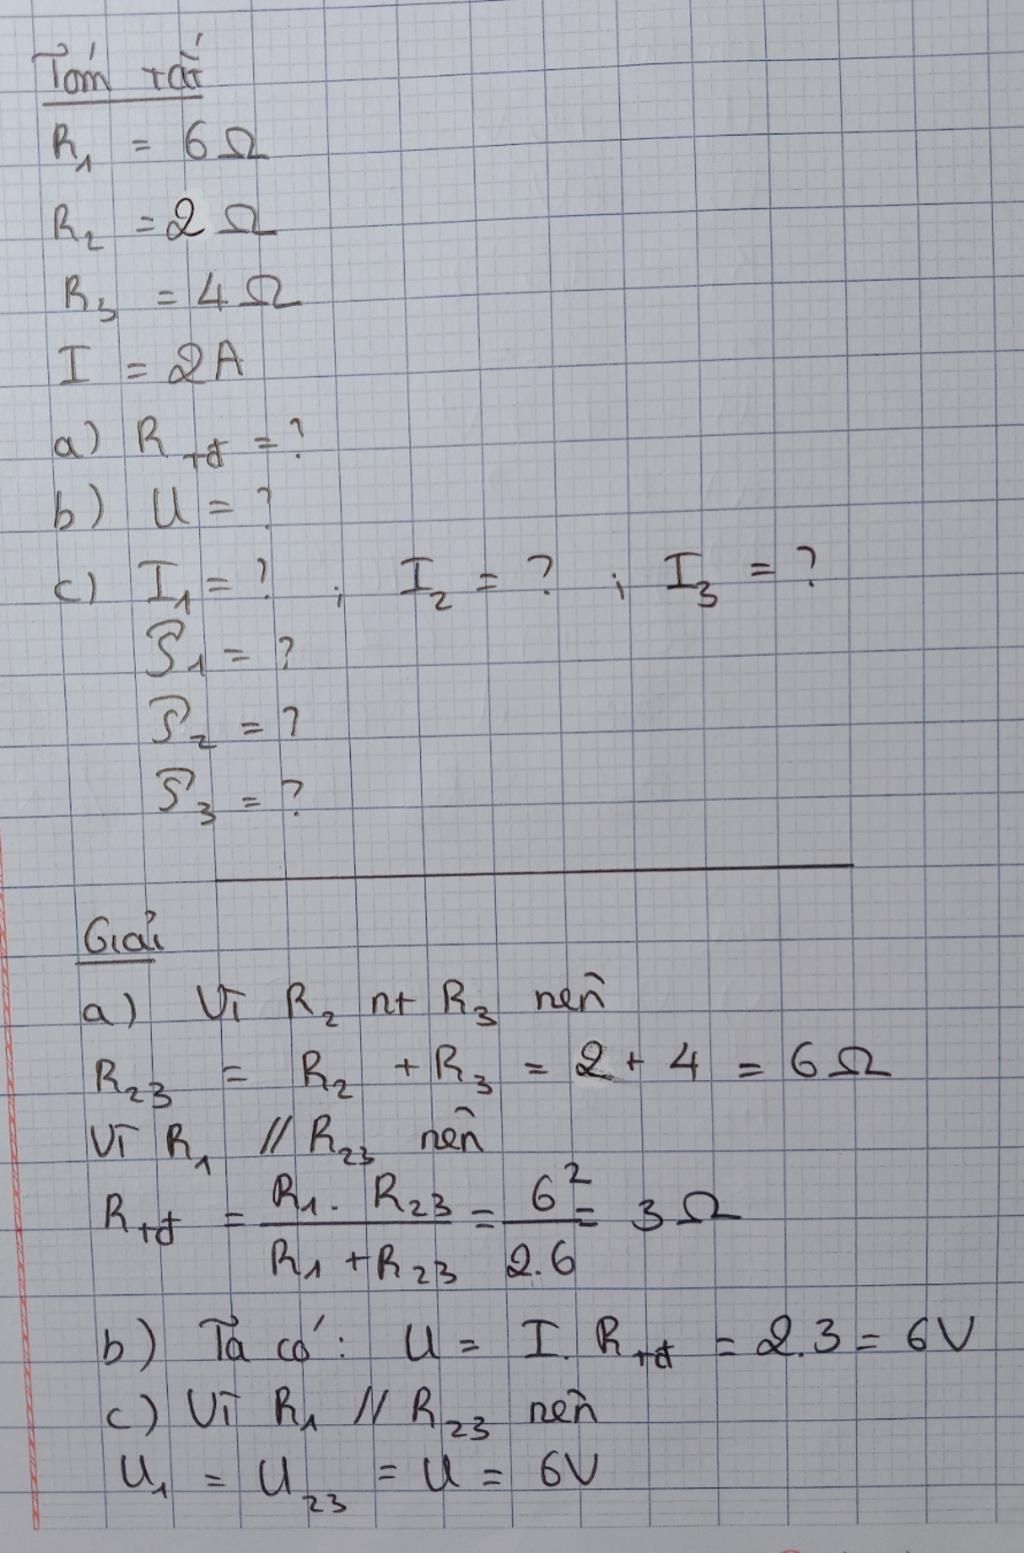 Tóm tắt
R₁ = 6 Ω
R₂ = 2 Ω
R₃ = 4 Ω
I = 2A
a) R tđ = ?
b) U = ?
c) I₁ = ? ; I₂ = ? ; I₃ = ?
P₁ = ?
P₂ = ?
P₃ = ?
Giải
a) Vì R₂ nt R₃ nên
R₂₃ = R₂ + R₃ = 2 + 4 = 6 Ω
Vì R₁ // R₂₃ nên
R tđ = (R₁ . R₂₃)/(R₁ + R₂₃) = 6²/2.6 = 3 Ω
b) Ta có: U = I. R tđ = 2.3 = 6V
c) Vì R₁ // R₂₃ nên
U₁ = U₂₃ = U = 6V